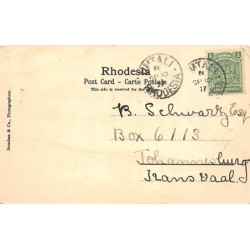 Rhodesia
Post Card - Carte Postale
This side is reserved for the
UMTALI
RHODESIA
UMTALI
B. Schwartz Esq
Box 6113
Johannesburg
Transvaal
Smart & Co., Photographers.